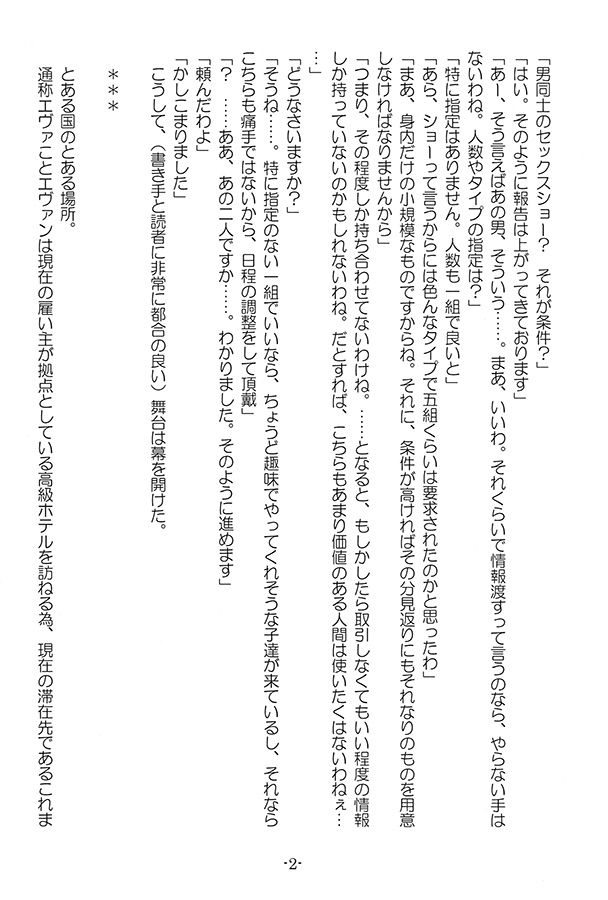 「男同士のセックスショー？　それが条件？」
「はい。そのように報告は上がってきております」
「あー、そう言えばあの男、そういう……。まあ、いいわ。それくらいで情報渡すって言うのなら、やらない手は
ないわね。人数やタイプの指定は？」
「特に指定はありません。人数も一組で良いと」
「あら、ショーって言うからには色んなタイプで五組くらいは要求されたのかと思ったわ」
「まあ、身内だけの小規模なものですからね。それに、条件が高ければその分見返りにもそれなりのものを用意
しなければなりませんから」
「つまり、その程度しか持ち合わせてないわけね。……となると、もしかしたら取引しなくてもいい程度の情報
しか持っていないのかもしれないわね。だとすれば、こちらもあまり価値のある人間は使いたくはないわねぇ…
…」
「どうなさいますか？」
「そうね……。特に指定のない一組でいいなら、ちょうど趣味でやってくれそうな子達が来ているし、それなら
こちらも痛手ではないから、日程の調整をして頂戴」
「？　……ああ、あの二人ですか……。わかりました。そのように進めます」
「頼んだわよ」
「かしこまりました」
こうして、（書き手と読者に非常に都合の良い）舞台は幕を開けた。
＊＊＊
とある国のとある場所。
通称エヴァことエヴァンは現在の雇い主が拠点としている高級ホテルを訪ねる為、現在の滞在先であるこれま
-2-